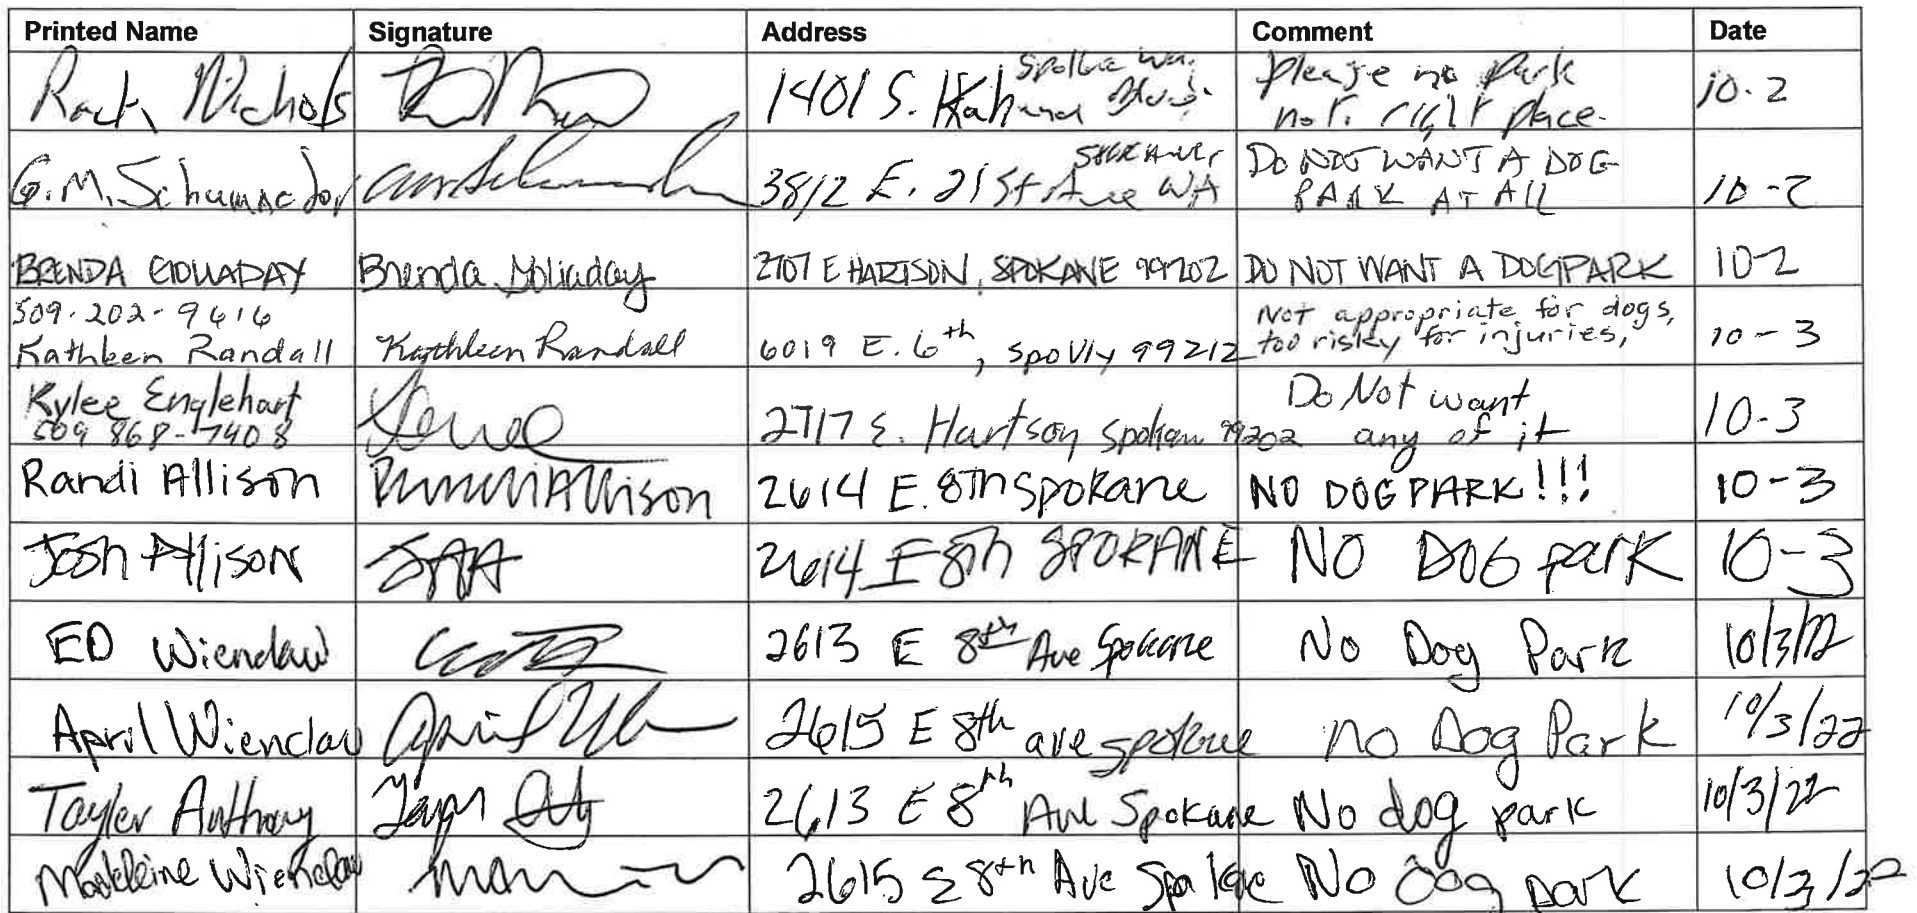 Printed Name Signature Address Comment Date
Nichols 1401 S. Blvd. please no park not right place. 10-2
G.M. 3812 E. 21st Ave WA DO NOT WANT A DOG PARK AT ALL 10-2
BRENDA GOLLADAY Brenda Golladay 2707 E HARTSON, SPOKANE 99202 DO NOT WANT A DOG PARK 10-2
509-202-9616
Kathleen Randall Kathleen Randall 6019 E. 6th, Spo Vly 99212 Not appropriate for dogs, too risky for injuries, 10-3
Kylee Englehart 2717 E. Hartson Spokane 99202 Do Not want any of it 10-3
509 868-7408
Randi Allison Allison 2614 E. 8th Spokane NO DOG PARK!!! 10-3
Josh Allison 2614 E 8th SPOKANE NO DOG park 10-3
ED Wienclaw 2613 E 8th Ave Spokane No Dog Park 10/3/22
April Wienclaw April 2615 E 8th ave spokane no Dog Park 10/3/22
Tayler Anthony 2613 E 8th Ave Spokane No dog park 10/3/22
Madeleine Wienclaw 2615 E 8th Ave Spokane No Dog park 10/3/22